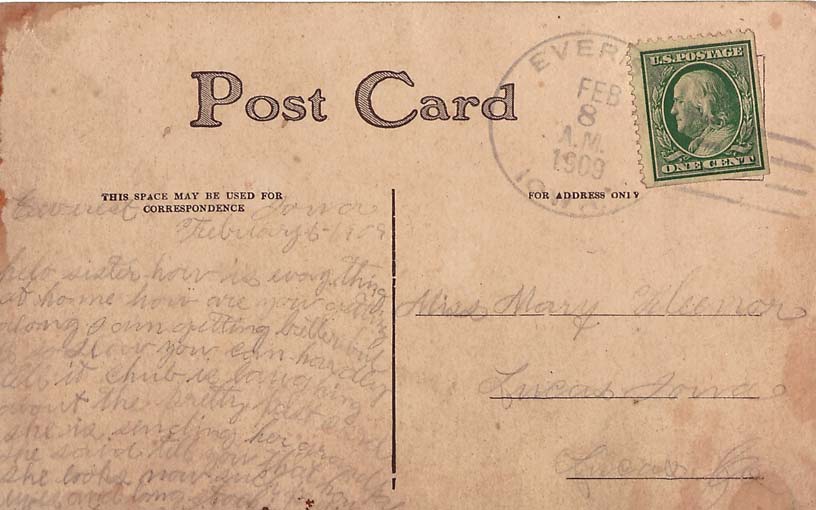 Post Card
EVER
FEB
8
A.M.
1909
IOWA
U.S. POSTAGE
ONE CENT
THIS SPACE MAY BE USED FOR
CORRESPONDENCE
FOR ADDRESS ONLY
Everist Iowa
1909
helo sister how is everything
at home how are you getting
along I am getting better but
so slow you can hardly
tell it chub is laughing
about the pretty post card
she is sending her
she said tell you that
she looks now
and long
Miss Mary
Lucas Iowa
Lucas Co